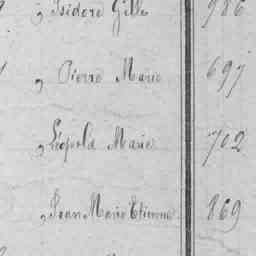 „ Isidore Gille 986
„ Pierre Marie 697
„ Léopold Marie 702
„ Jean Marie Etienne 869